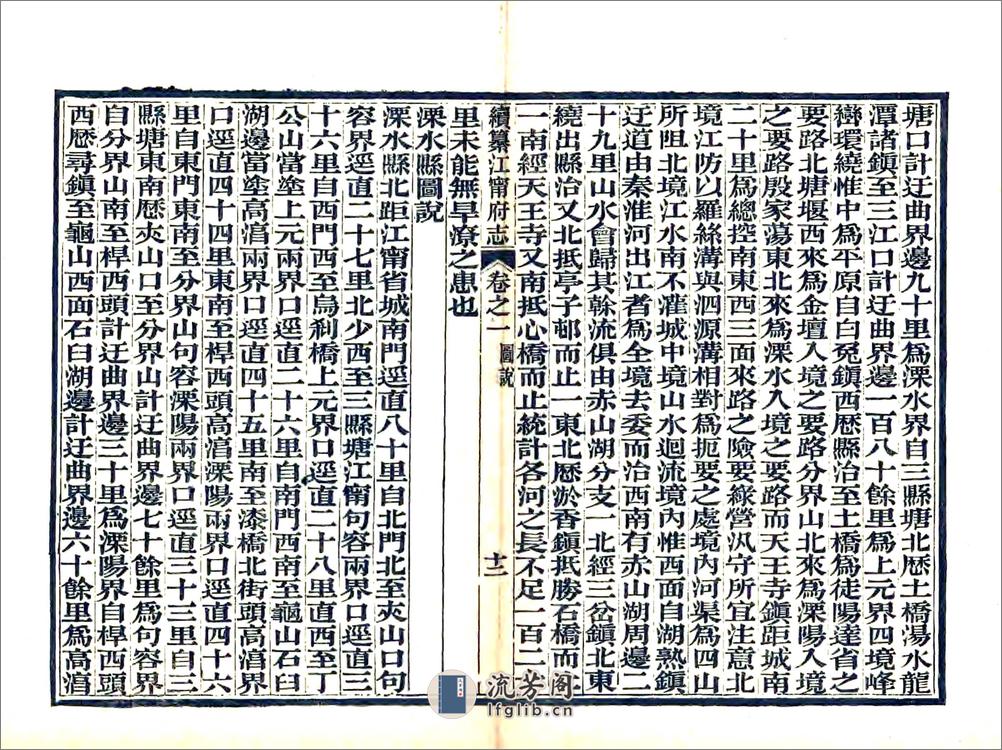 塘口計迂曲界邊九十里爲溧水界自三縣塘北歷土橋湯水龍
潭諸鎮至三江口計迂曲界邊一百八十餘里爲上元界四境峰
巒環繞惟中爲平原自白兔鎮西歷縣治至土橋爲徒陽達省之
要路北塘堰西來爲金壇入境之要路分界山北來爲溧陽入境
之要路殷家蕩東北來爲溧水入境之要路而天王寺鎮距城南
二十里爲總控南東西三面來路之險要綠營汛守所宜注意北
境江防以羅絲溝與泗源溝相對爲扼要之處境內河渠爲四山
所阻北境江水南不灌城中境山水迴流境內惟西面自湖熟鎮
迂道由秦淮河出江者爲全境去委而治西南有赤山湖周邊二
十九里山水會歸其幹流俱由赤山湖分支一北經三岔鎮北東
繞出縣治又北抵亭子邨而止一東北歷淤香鎮抵勝石橋而止
一南經天王寺又南抵心橋而止統計各河之長不足一百二十
續纂江甯府志
卷之一 圖說
十二
里未能無旱潦之患也
溧水縣圖說
溧水縣北距江甯省城南門逕直八十里自北門北至夾山口句
容界逕直二十七里北少西至三縣塘江甯句容兩界口逕直三
十六里自西門西至烏刹橋上元界口逕直二十八里直西至丁
公山當塗上元兩界口逕直二十六里自南門西南至龜山石臼
湖邊當塗高湻兩界口逕直四十五里南至漆橋北街頭高湻界
口逕直四十四里東南至桿西頭高湻溧陽兩界口逕直四十六
里自東門東南至分界山句容溧陽兩界口逕直三十三里自三
縣塘東南歷夾山口至分界山計迂曲界邊七十餘里爲句容界
自分界山南至桿西頭計迂曲界邊三十里爲溧陽界自桿西頭
西歷尋鎮至龜山西面石臼湖邊計迂曲界邊六十餘里爲高湻
流芳阁
lfglib.cn